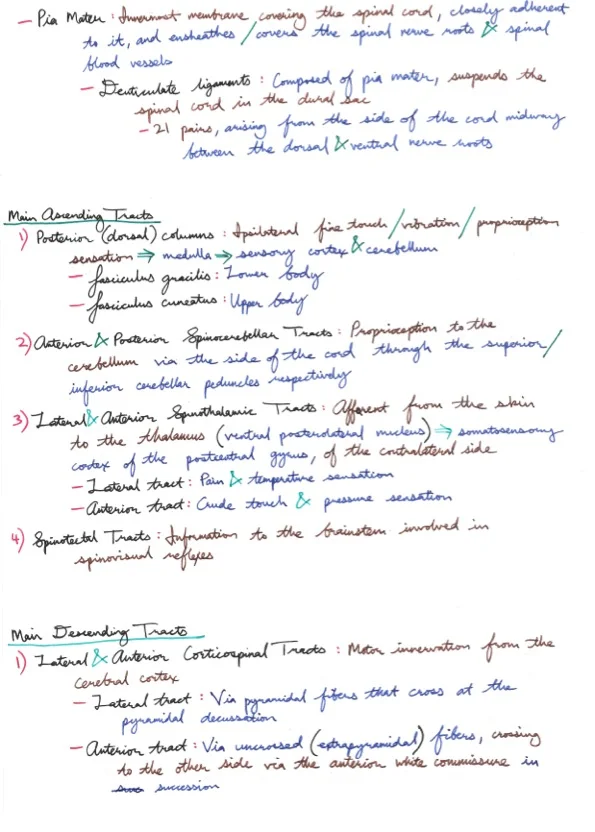 — Pia Mater : Innermost membrane covering the spinal cord, closely adherent
to it, and ensheathes / covers the spinal nerve roots & spinal
blood vessels
— Denticulate ligaments : Composed of pia mater, suspends the
spinal cord in the dural sac
— 21 pairs, arising from the side of the cord midway
between the dorsal & ventral nerve roots
Main Ascending Tracts
1) Posterior (dorsal) columns : Ipsilateral fine touch / vibration / proprioception
sensation ⇒ medulla ⇒ sensory cortex & cerebellum
— fasciculus gracilis : Lower body
— fasciculus cuneatus : Upper body
2) Anterior & Posterior Spinocerebellar Tracts : Proprioception to the
cerebellum via the side of the cord through the superior /
inferior cerebellar peduncles respectively
3) Lateral & Anterior Spinothalamic Tracts : Afferent from the skin
to the thalamus (ventral posterolateral nucleus) ⇒ somatosensory
cortex of the postcentral gyrus, of the contralateral side
— Lateral tract : Pain & temperature sensation
— Anterior tract : Crude touch & pressure sensation
4) Spinotectal Tracts : Information to the brainstem involved in
spinovisual reflexes
Main Descending Tracts
1) Lateral & Anterior Corticospinal Tracts : Motor innervation from the
cerebral cortex
— Lateral tract : Via pyramidal fibers that cross at the
pyramidal decussation
— Anterior tract : Via uncrossed (extrapyramidal) fibers, crossing
to the other side via the anterior white commissure in
succession